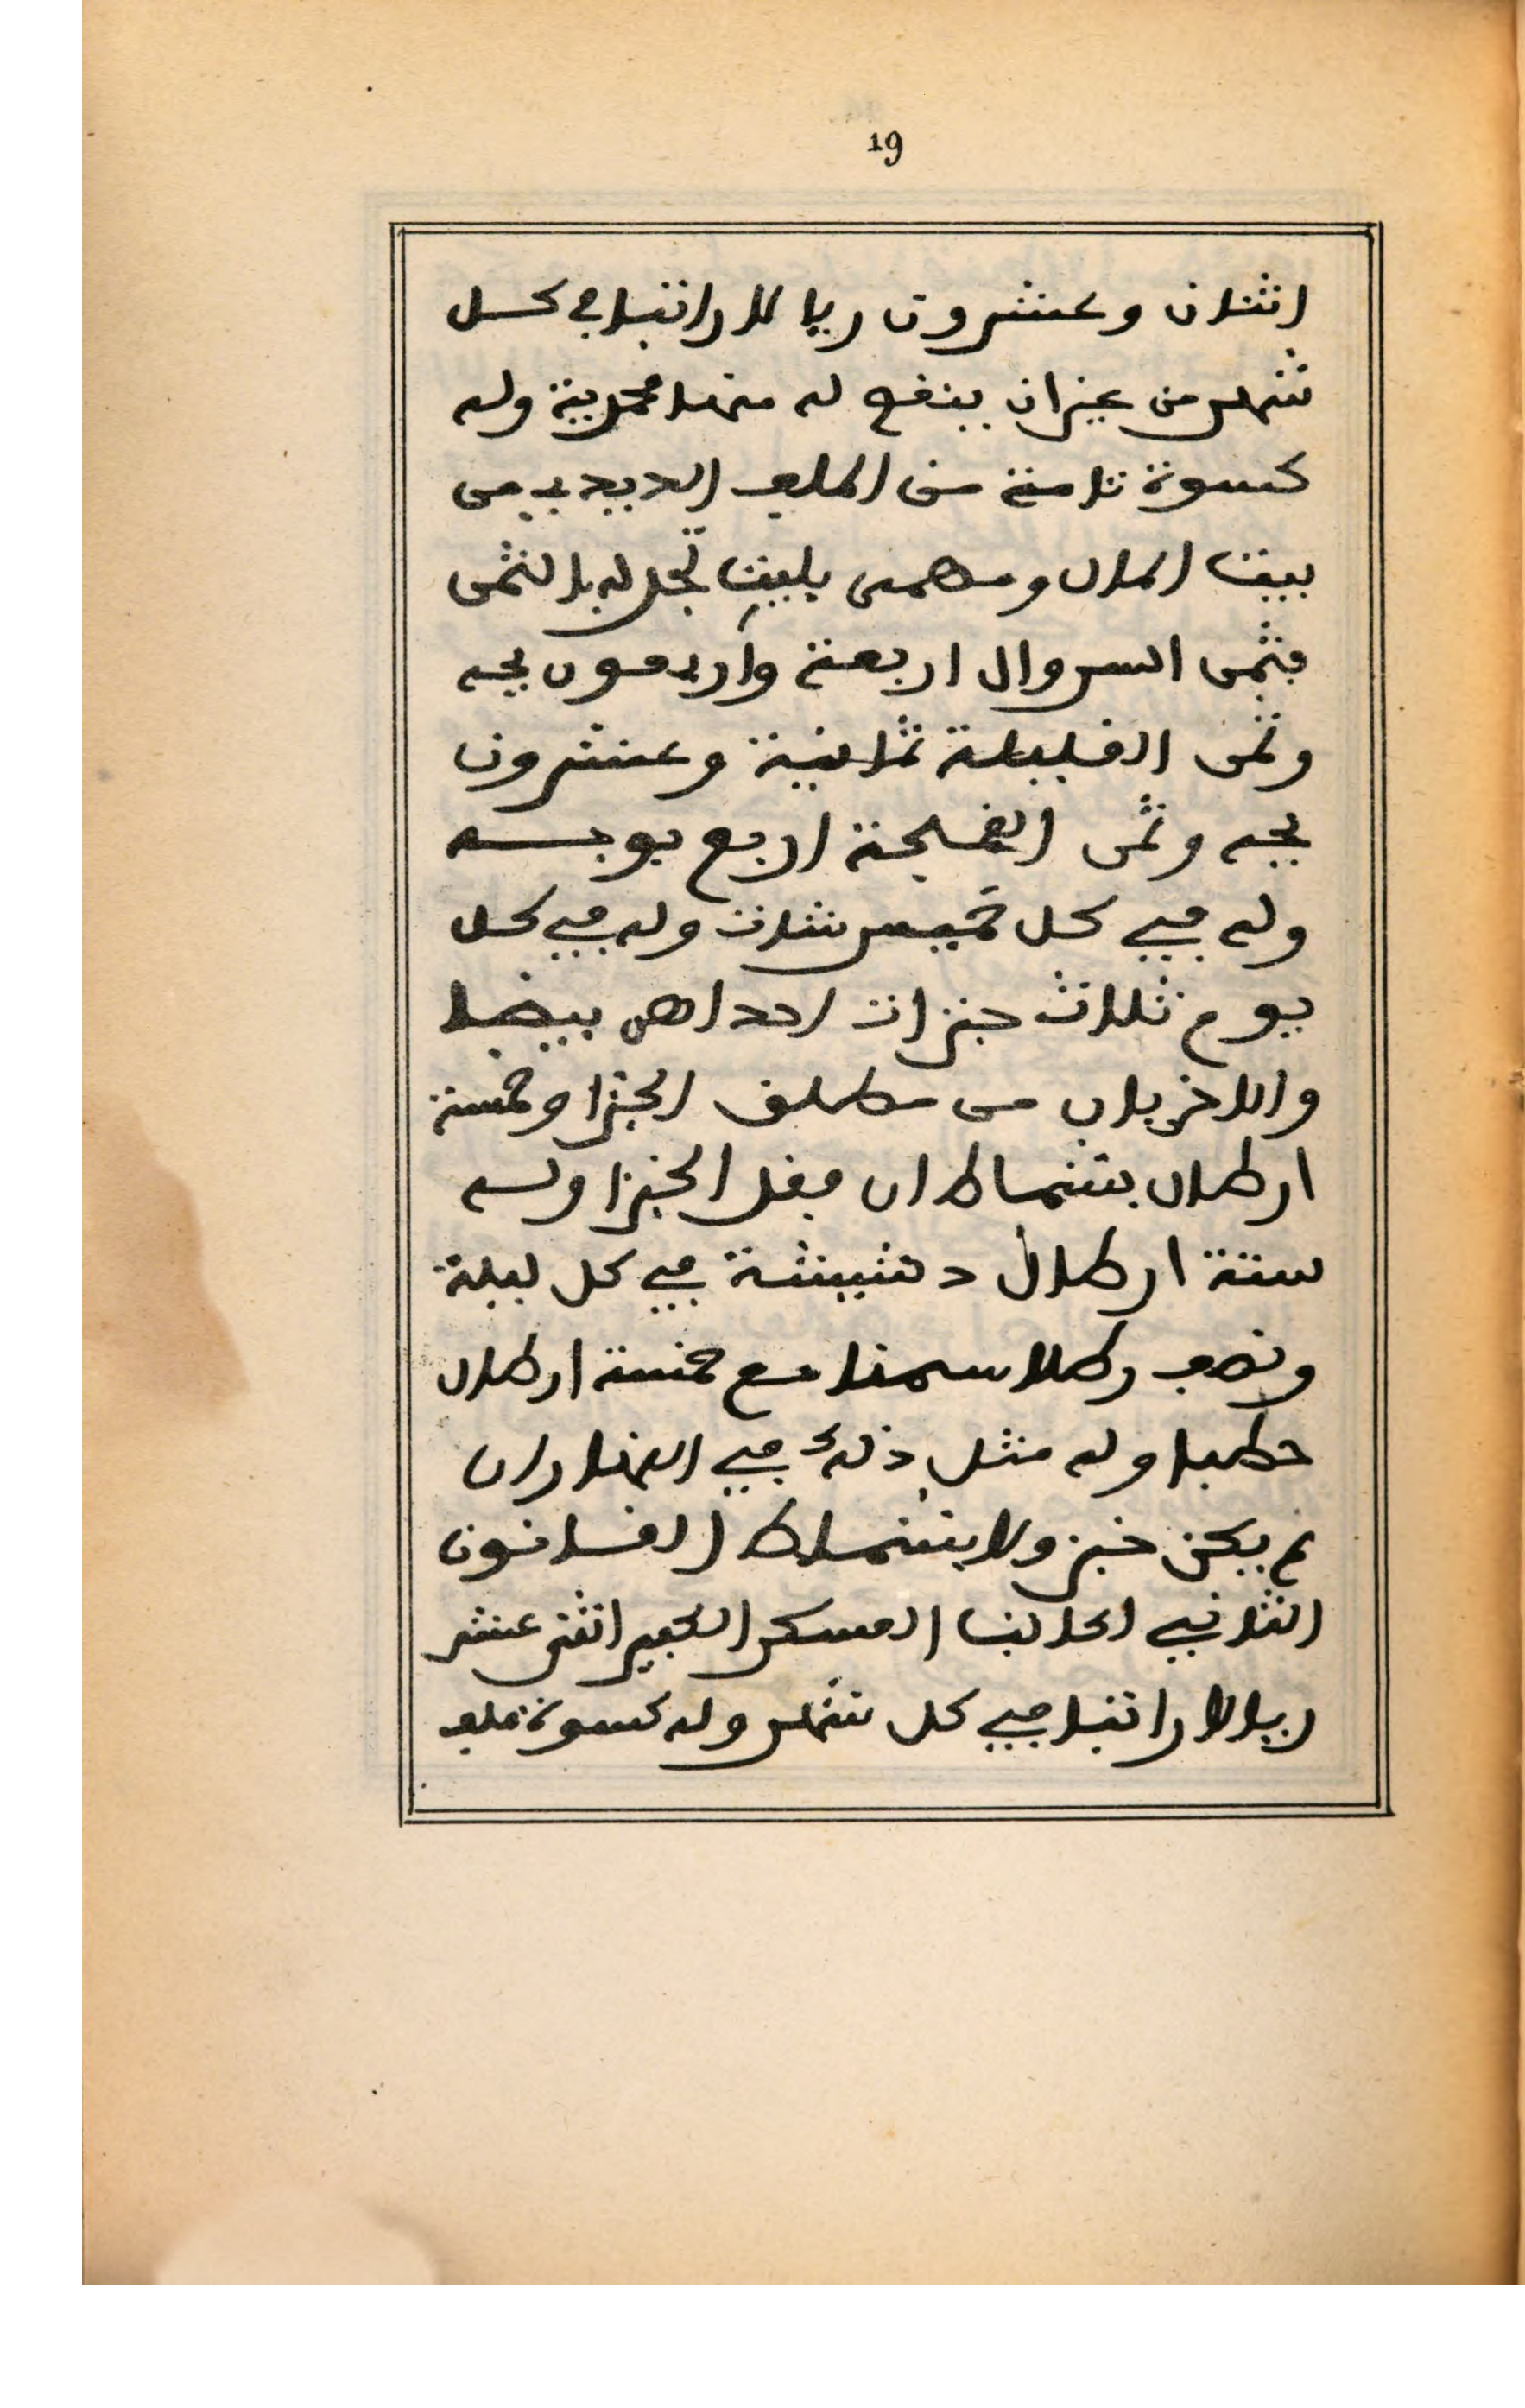 19
اثنان وعشرون ريالا راتبا في كل
شهر من غير ان ينفح له منها محمدية وله
كسوة تامة من الملف الجديد من
بيت المال ومهمى يليت تجدله بالثمن
فثمن السروال اربعة واربعون بجه
وثمن الفليلة ثمانية وعشرون
بجه وثمن اربع بوجه
وله في كل خميس شات وله في كل
يوم ثلاث خبزات احداهن بيضا
والاخريان من مطلق الخبز او خمسة
ارطال بشماط ان فقد الخبز وله
ستة ارطال دشيشة في كل ليلة
ونصف رطلا سمنا مع خمسة ارطال
حطبا وله مثل ذلك في النهار ان
لم يكن خبز ولا بشماط القانون
الثاني لكاتب العسكر الكبير اثنى عشر
ريالا راتبا في كل شهر وله كسوة ملف